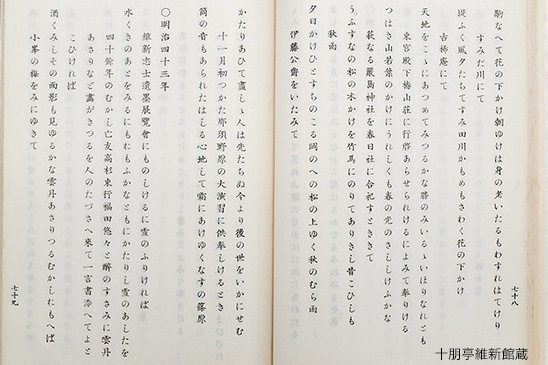 駒なへて花の下かけ朝ゆけは身の老いたるもわすれはてけり
すみた川にて
堤ふく風夕たちてすみ田川かもめもさわく花の下かけ
古稀庵にて
天地をこゝにあつめてみつるかな膝のみいるゝいほりなれとも
東宮殿下椿山莊に行啓あらせられけるによみて奉りける
つはき山若葉のかけにうれしくも春の光のさしゝけふかな
萩なる嚴島神社を春日社に合祀すときゝて
うふすなの松の木かけを竹馬にのりてありきし昔こひしも
秋雨
夕日かけひとすちのこる岡のへの松の上ゆく秋のむら雨
伊藤公爵をいたみて
七十八
かたりあひて盡しゝ人は先たちぬ今より後の世をいかにせむ
十一月初つかた那須野原の大演習に供奉しけるとき
筒の音もあられたはしる心地して霜にあけゆくなすの篠原
○明治四十三年
維新志士遺墨展覽會にものしけるに雪のふりけれは
水くきのあとをみるにもにもふかなともにかたりし雪のあしたを
四十餘年のむかし亡友高杉東行福田悠々と醉のすさみに雲丹
あさりなと畵かきつるを人のたつさへ來て一言書添へてよと
こひけれは
酒くみしその面影も見ゆるかな雲丹あさりつるむかしおもへは
小峯の梅をみにゆきて
七十九
十朋亭維新館蔵